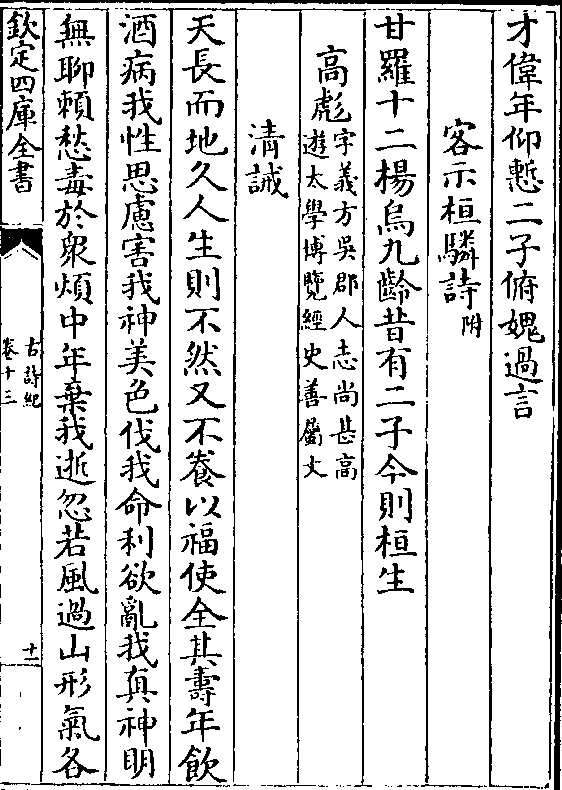 才偉年仰慙二子俯媿過言
客示桓驎詩附
甘羅十二楊烏九齡昔有二子今則桓生
高彪字義方吳郡人志尚甚高
遊太學博覽經史善屬文
清誡
天長而地久人生則不然又不養以福使全其壽年飲
酒病我性思慮害我神美色伐我命利欲亂我真神明
無聊賴愁毒於衆煩中年棄我逝忽若風過山形氣各
欽定四庫全書
古詩紀
卷十三
十二